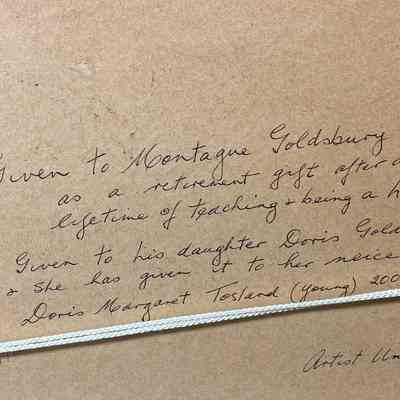 Given to Montague Goldsbury
as a retirement gift after a
lifetime of teaching & being a h
Given to his daughter Doris Gold
& she has given it to her neice
Doris Margaret Tosland (young) 200
Artist Un